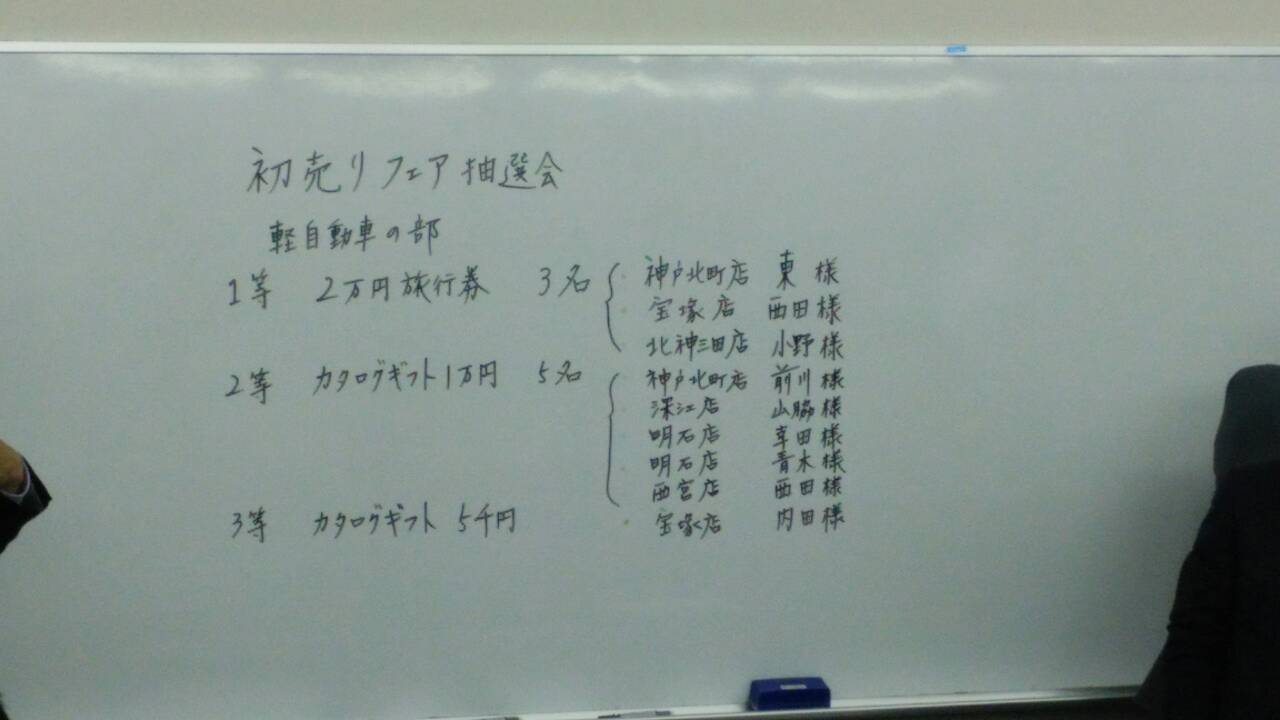 初売りフェア抽選会
軽自動車の部
1等 2万円旅行券 3名
神戸北町店 東 様
宝塚店 西田様
北神三田店 小野様
2等 カタログギフト1万円 5名
神戸北町店 前川様
深江店 山脇様
明石店 幸田様
明石店 青木様
西宮店 西田様
3等 カタログギフト 5千円
宝塚店 内田様